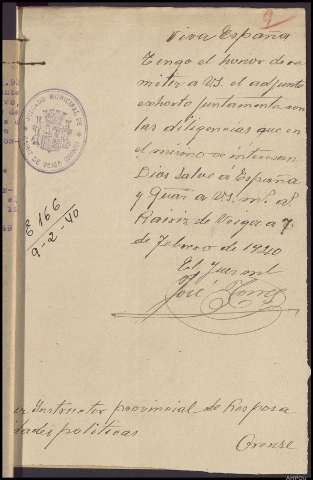 9
Viva España
Tengo el honor de re-
mitir a VS. el adjunto
exhorto juntamente con
las diligencias que en
el mismo se interesan
Dios Salve a España
y Gue. a VS. m. a.
Rairiz de Veiga a 7
de Febrero de 1940
El Juez ml
José Torres
JUZGADO MUNICIPAL DE
E 166
9-2-40
Instructor provincial de Resposa
idades politicas
Orense